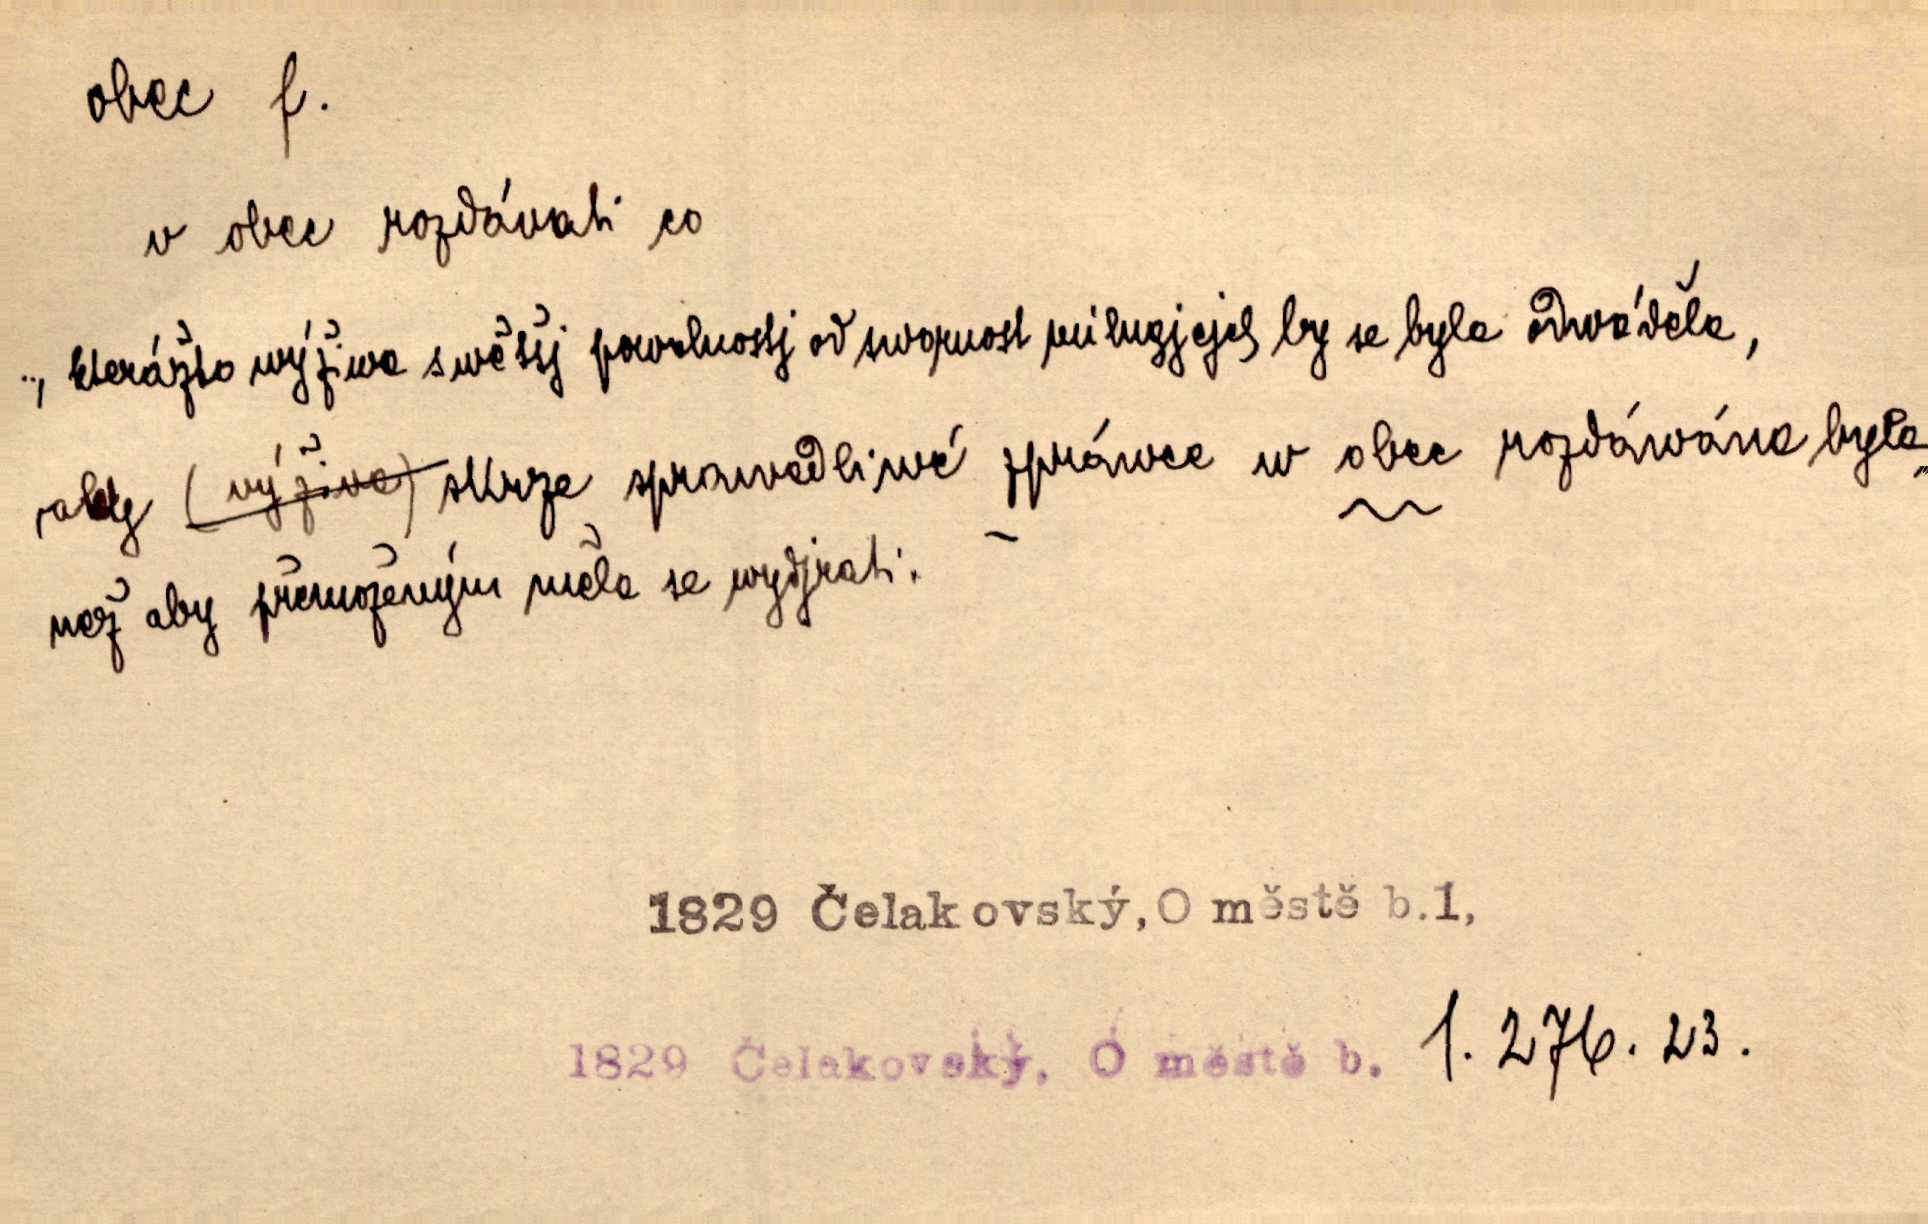 obec f.
v obec rozdávati co
„ kterážto wýžiwa s wětšj powolnostj od swornost milugjcjch by se byla odwáděla,
aby (výživa) skrze sprawedliwé spráwce w obec rozdáwána byla„
než aby přemoženým měla se wydjrati. –
1829 Čelakovský, O městě b.1,
1829 Čelakovský, O městě b. 1. 276. 23.